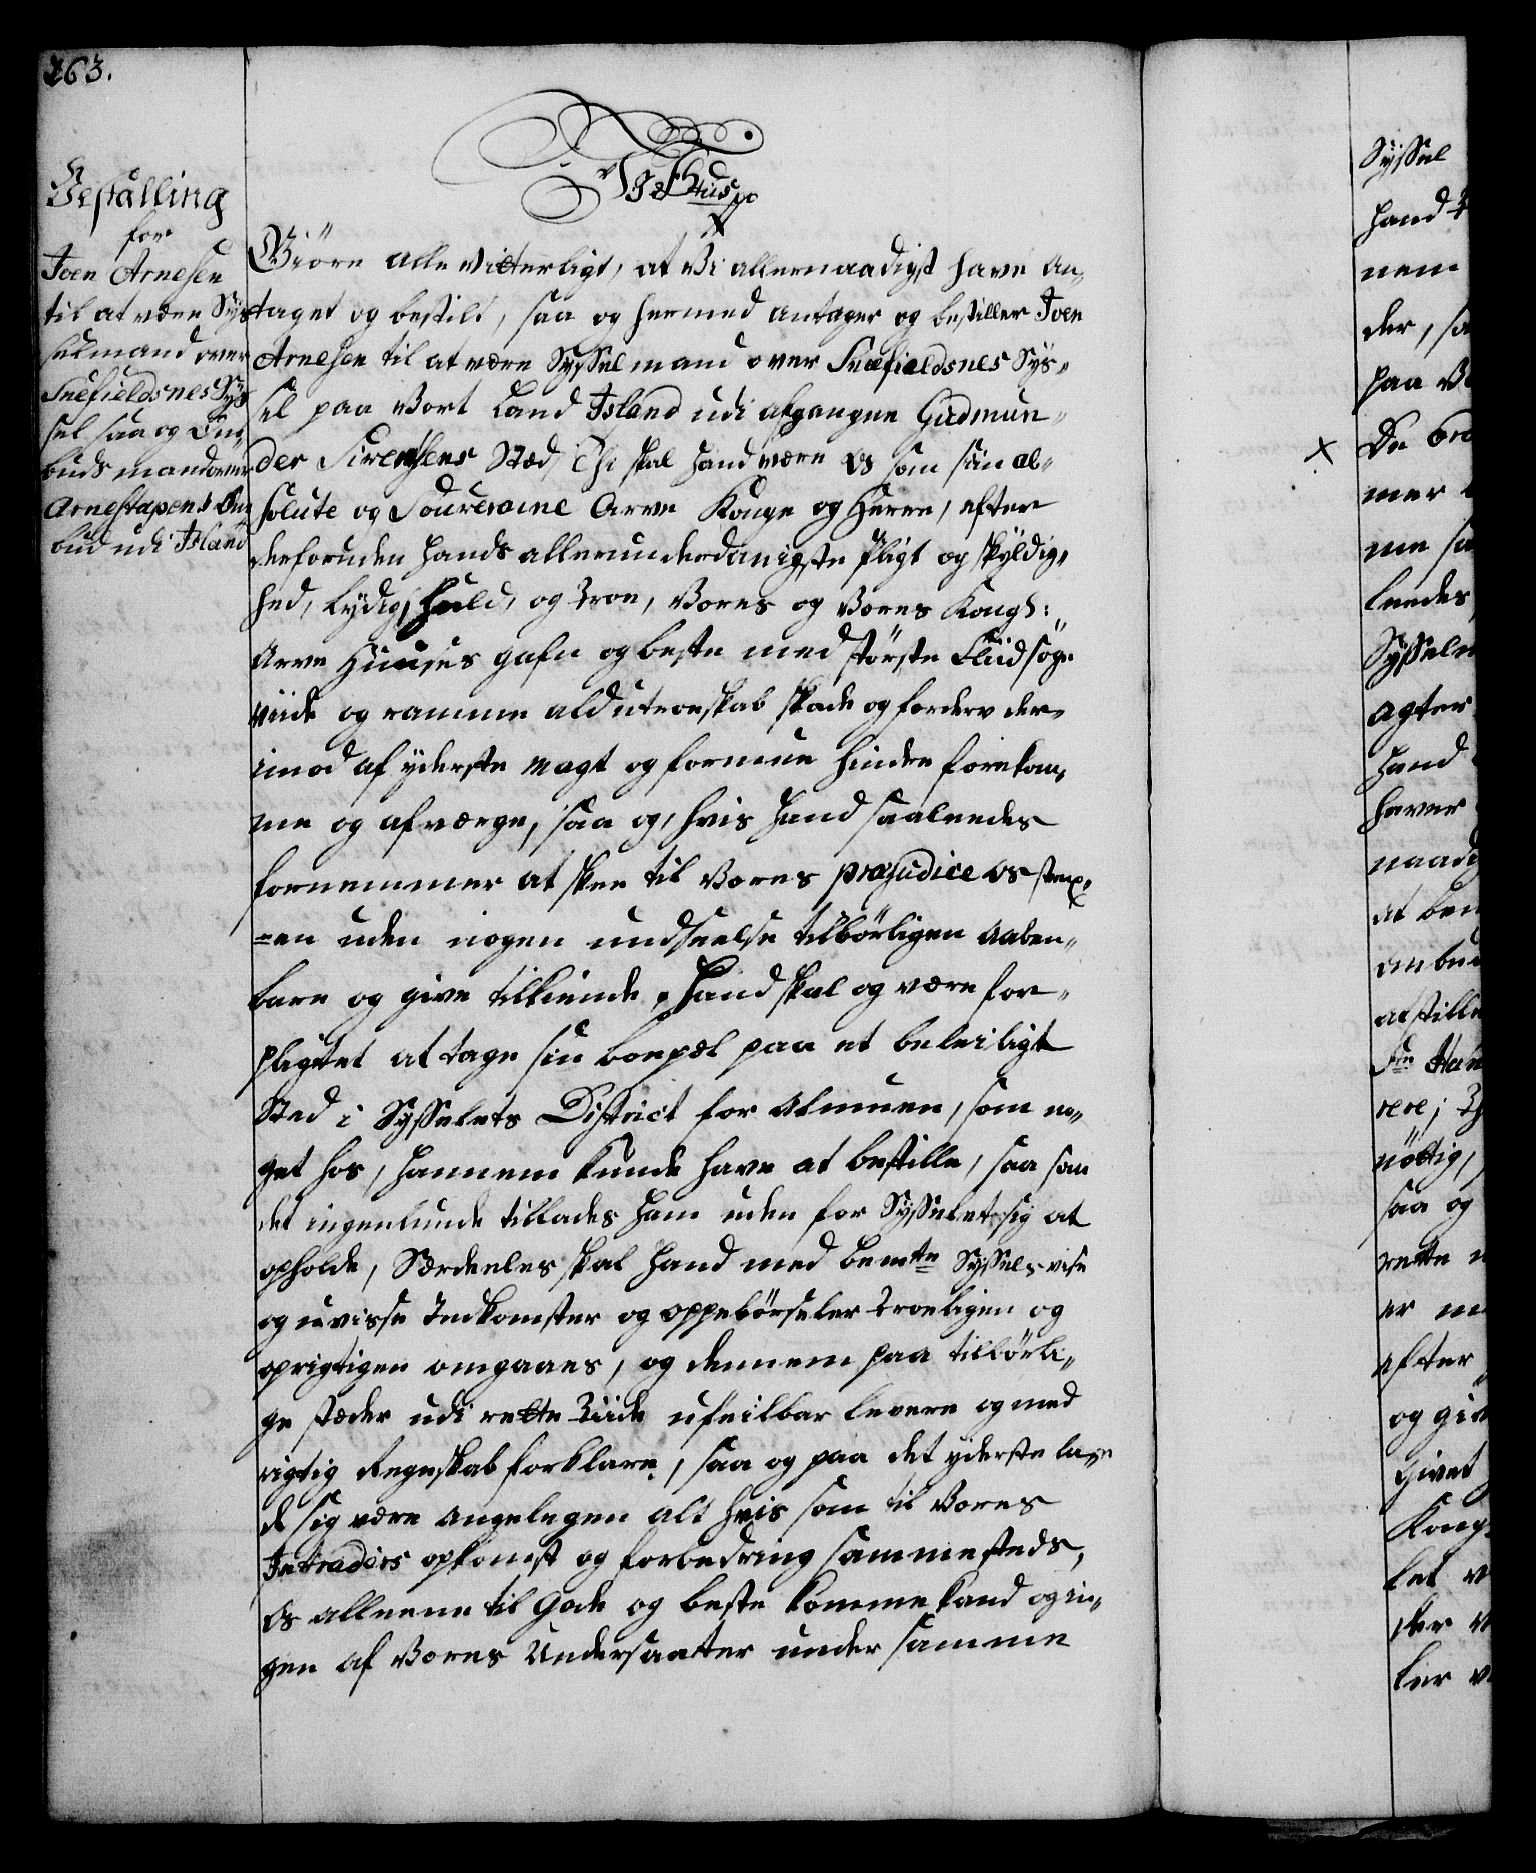 263.
Bestalling
for
Joen Arnesen
til at være Sys-
selmand over
Snefieldsnes Sys-
sel saa og Om-
budsmand over
Arnestapens Om-
bud udi Island
Giöre alle vitterligt, at Vi allernaadigst have An-
taget og bestilt, saa og hermed antager og bestiller Joen
Arnesen til at være Sysselmand over Snefieldsnes Sys-
sel paa Vort Land Island udi afgangne Gudmun-
der Sirersens Stæd, Thi skal hand være Os som sin ab-
solute og Souveraine Arve Konge og Herre, efter
derforuden hands allerunderdanigste Pligt og skyldig-
hed, lydig, huld, og troe, Vores og Vores Kongl:
Arve Huuses gafn og beste med störste Fliid söge
viide og ramme ald utroeskab skade og forderv der-
imod af yderste magt og formue hindre forekom-
me og afværge, saa og, hvis hand saaleedes
fornemmer at skee til Vores præjudice os strax-
=en uden nogen undseelse tilbörligen aaben-
bare og give tilkiende, Hand skal og være for-
pligtet at tage sin boepæl paa et beleiligt
Sted i Sysselets District for Almuen, som no-
get hos, hannem kunde have at bestille, saa som
det ingenlunde tillades ham uden for Sysselet sig at
opholde, Særdeeles skal hand med bemte Syssels visse
og uvisse Indkomster og oppebörseler troeligen og
oprigtigen omgaaes, og dennem paa tilbörli-
ge stæder udi rette Tiide ufeilbar levere og med
rigtig Regnskab forklare, saa og paa det yderste la-
de sig være angelegen alt hvis som til Vores
Intraders opkomst og forbedring sammesteds,
Os alleene til Gode og beste komme kand og in-
gen af Vores Undersaatter under samme
Syssel
hand
nem
der, sa
paa
×
De
mer
me
leedes
Syssel
agter
hand
haver
naadi
at
ombu
at stille
nöttig,
saa og
rette
er
efter
og giv
Givet
Kong
let
der
ler